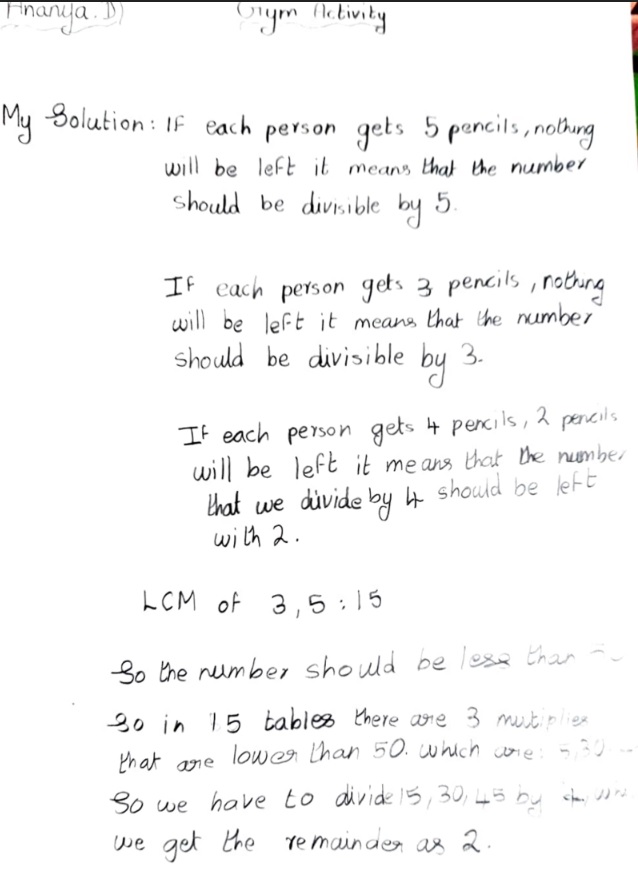 Ananya. D) Gym Activity
My Solution: If each person gets 5 pencils, nothing
will be left it means that the number
should be divisible by 5.
If each person gets 3 pencils, nothing
will be left it means that the number
should be divisible by 3.
If each person gets 4 pencils, 2 pencils
will be left it means that the number
that we divide by 4 should be left
with 2.
LCM of 3, 5 : 15
So the number should be less than
So in 15 tables there are 3 multiples
that are lower than 50. which are: 5, 30
So we have to divide 15, 30, 45 by
we get the remainder as 2.